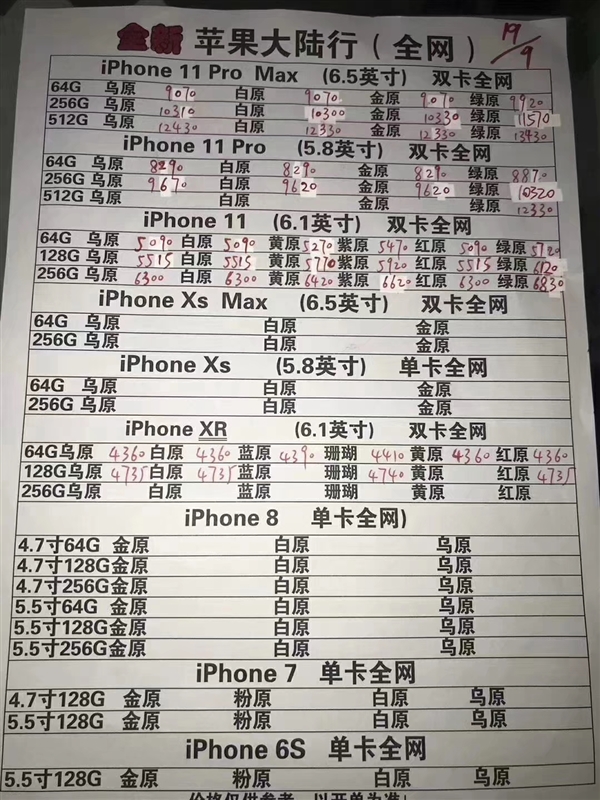 全新 苹果大陆行（全网） 19/9
iPhone 11 Pro Max (6.5英寸) 双卡全网
64G 乌原 9070 白原 9070 金原 9070 绿原 9920
256G 乌原 10310 白原 10300 金原 10330 绿原 11570
512G 乌原 12430 白原 12330 金原 12330 绿原 13430
iPhone 11 Pro (5.8英寸) 双卡全网
64G 乌原 8290 白原 8290 金原 8290 绿原 8870
256G 乌原 9670 白原 9620 金原 9620 绿原 10320
512G 乌原 白原 金原 绿原 12330
iPhone 11 (6.1英寸) 双卡全网
64G 乌原 5090 白原 5090 黄原 5270 紫原 5470 红原 5090 绿原 5720
128G 乌原 5515 白原 5515 黄原 5770 紫原 5920 红原 5515 绿原 6120
256G 乌原 6300 白原 6300 黄原 6420 紫原 6620 红原 6300 绿原 6830
iPhone Xs Max (6.5英寸) 双卡全网
64G 乌原 白原 金原
256G 乌原 白原 金原
iPhone Xs (5.8英寸) 单卡全网
64G 乌原 白原 金原
256G 乌原 白原 金原
iPhone XR (6.1英寸) 双卡全网
64G乌原 4360 白原 4360 蓝原 4390 珊瑚 4410 黄原 4360 红原 4360
128G乌原 4735 白原 4735 蓝原 珊瑚 4740 黄原 红原 4735
256G乌原 白原 蓝原 珊瑚 黄原 红原
iPhone 8 单卡全网)
4.7寸64G 金原 白原 乌原
4.7寸128G 金原 白原 乌原
4.7寸256G 金原 白原 乌原
5.5寸64G 金原 白原 乌原
5.5寸128G金原 白原 乌原
5.5寸256G金原 白原 乌原
iPhone 7 单卡全网
4.7寸128G 金原 粉原 白原 乌原
5.5寸128G 金原 粉原 白原 乌原
iPhone 6S 单卡全网
5.5寸128G 金原 粉原 白原 乌原
价格仅供参考，以开单为准！